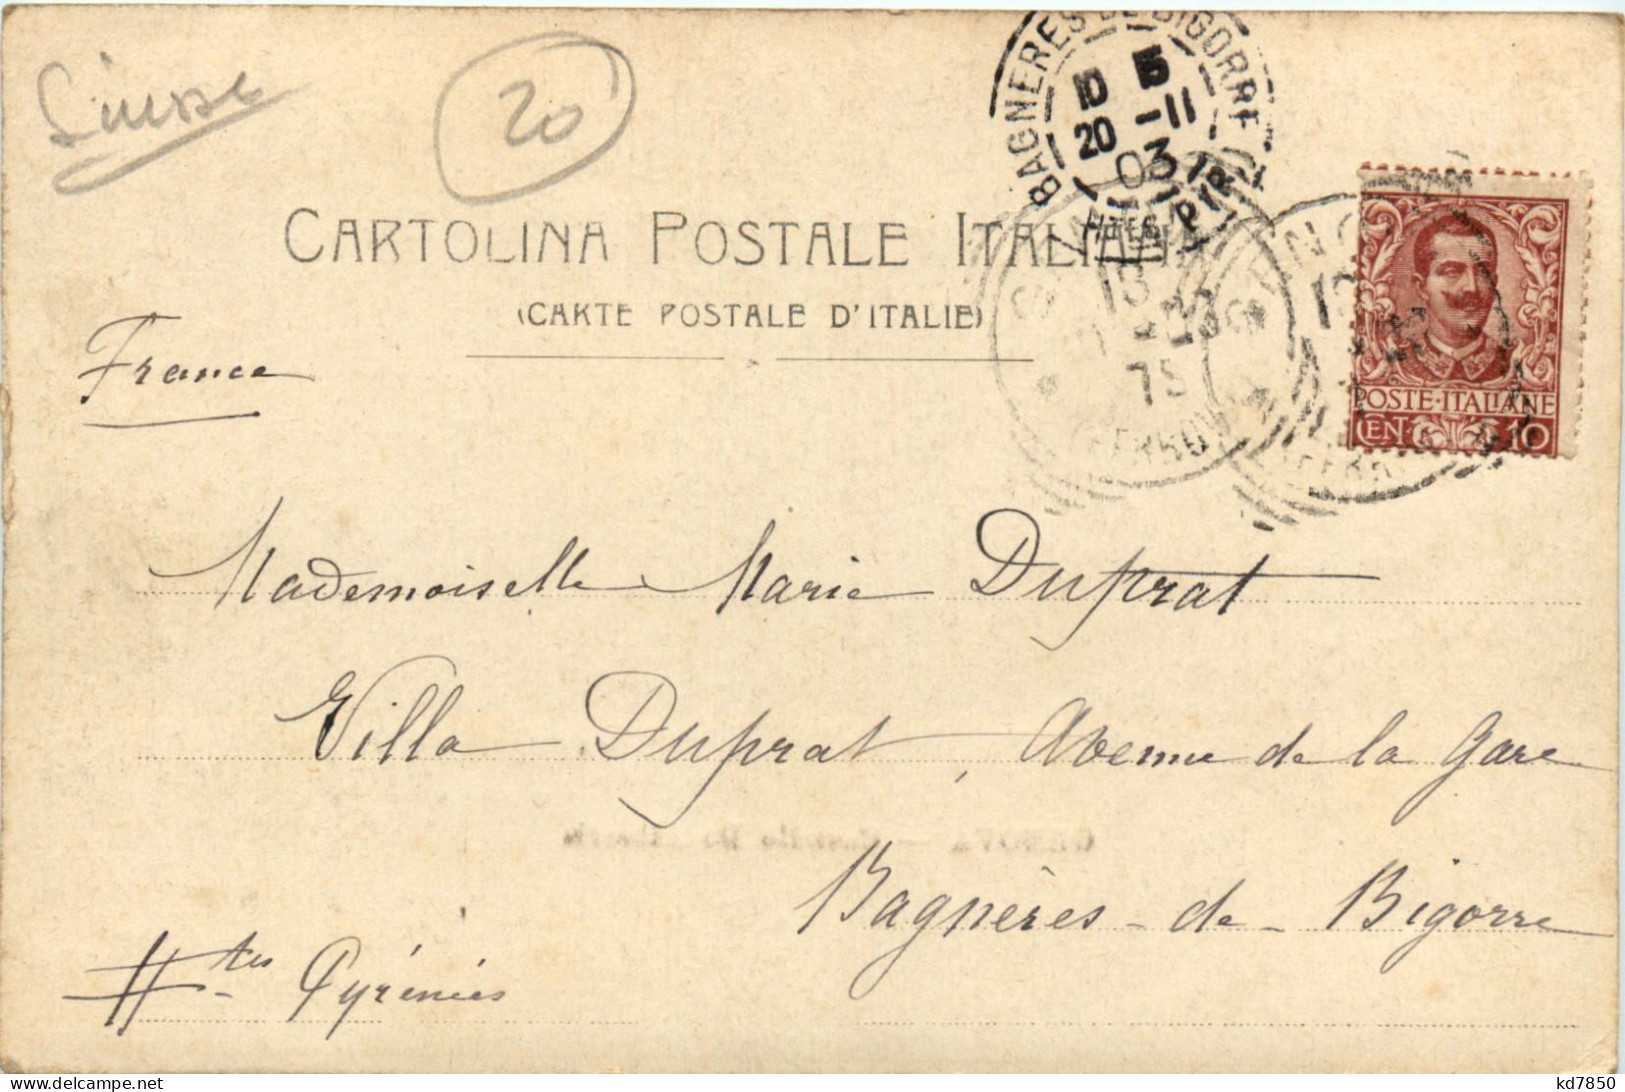 20
BAGNERES DE BIGORRE
10 15
20 -11
03
Htes
CARTOLINA POSTALE ITALIANA
(CARTE POSTALE D'ITALIE)
POSTE·ITALIANE
CEN 10
France
Mademoiselle Marie Duprat
Villa Duprat, Avenue de la Gare
Bagnères-de-Bigorre
Htes Pyrénées
kd7850